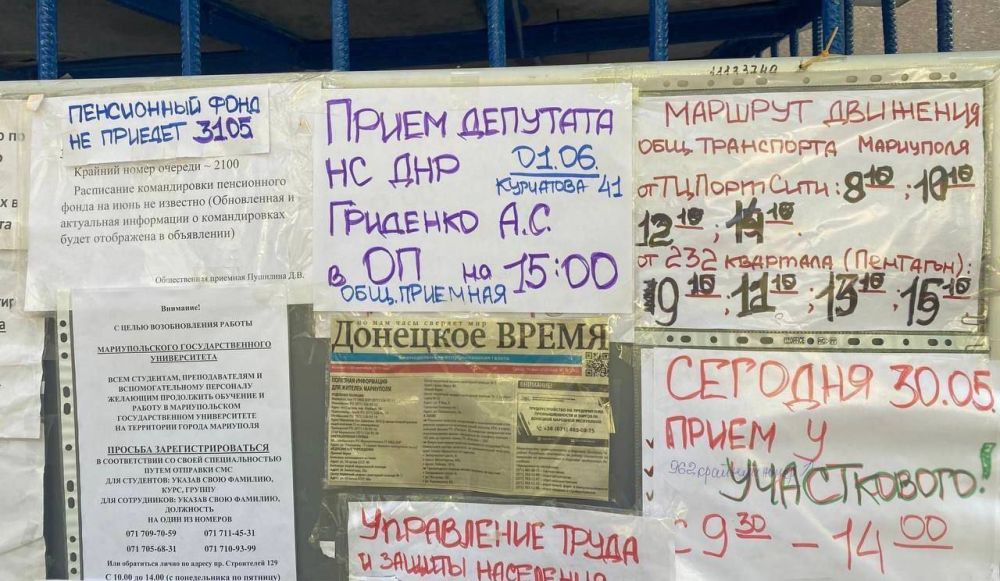 ПЕНСИОННЫЙ ФОНД
НЕ ПРИЕДЕТ 31.05
Крайний номер очереди ~ 2100
Расписание командировки пенсионного
фонда на июнь не известно (Обновленная и
актуальная информации о командировках
будет отображена в объявлении)
Общественная приемная Пушилина Д.В.
Внимание!
С ЦЕЛЬЮ ВОЗОБНОВЛЕНИЯ РАБОТЫ
МАРИУПОЛЬСКОГО ГОСУДАРСТВЕННОГО
УНИВЕРСИТЕТА
ВСЕМ СТУДЕНТАМ, ПРЕПОДАВАТЕЛЯМ И
ВСПОМОГАТЕЛЬНОМУ ПЕРСОНАЛУ
ЖЕЛАЮЩИМ ПРОДОЛЖИТЬ ОБУЧЕНИЕ И
РАБОТУ В МАРИУПОЛЬСКОМ
ГОСУДАРСТВЕННОМ УНИВЕРСИТЕТЕ
НА ТЕРРИТОРИИ ГОРОДА МАРИУПОЛЯ
ПРОСЬБА ЗАРЕГИСТРИРОВАТЬСЯ
В СООТВЕТСТВИИ СО СВОЕЙ СПЕЦИАЛЬНОСТЬЮ
ПУТЕМ ОТПРАВКИ СМС
ДЛЯ СТУДЕНТОВ: УКАЗАВ СВОЮ ФАМИЛИЮ,
КУРС, ГРУППУ
ДЛЯ СОТРУДНИКОВ: УКАЗАВ СВОЮ ФАМИЛИЮ,
ДОЛЖНОСТЬ
НА ОДИН ИЗ НОМЕРОВ
071 709-70-59 071 711-45-31
071 705-68-31 071 710-93-99
Или обратиться лично по адресу пр. Строителей 129
С 10.00 до 14.00 (с понедельника по пятницу)
ПРИЕМ ДЕПУТАТА
НС ДНР 01.06.
КУРЧАТОВА 41
ГРИДЕНКО А.С.
в ОП на 15:00
ОБЩ. ПРИЕМНАЯ
но нам часы сверяет мир
Донецкое ВРЕМЯ
ПОЛЕЗНАЯ ИНФОРМАЦИЯ
ДЛЯ ЖИТЕЛЕЙ МАРИУПОЛЯ
ВНИМАНИЕ!
УПРАВЛЕНИЕ ТРУДА
И ЗАЩИТЫ НАСЕЛЕНИЯ
МАРШРУТ ДВИЖЕНИЯ
ОБЩ. ТРАНСПОРТА МАРИУПОЛЯ
от ТЦ ПортСити: 8 10 ; 10 10
12 10 ; 14 10
от 232 квартала (Пентагон):
9 10 ; 11 10 ; 13 10 ; 15 10
СЕГОДНЯ 30.05.
ПРИЕМ У
УЧАСТКОВОГО!
с 9 30 – 14 00